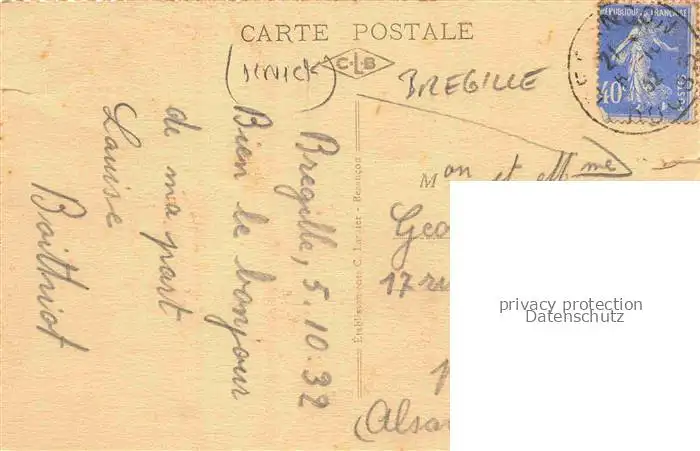 CARTE POSTALE
CLB
BREGILLE
RÉPUBLIQUE FRANÇAISE
40c
POSTES
Bregille, 5.10.32
Bien le bonjour
de ma part
Louise
Boithiot
Etablissements C. Lardier - Besançon
Mon et Mme
Geo
17 ru
(Alsa
privacy protection
Datenschutz